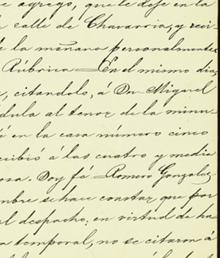 e agrego, que dejé en la
calle de Chavarría, y reci-
de la mañana personalmente
Rúbrica — En el mismo dia,
, citandolo, á Dn Miguel
dula al tenor de la minu-
é en la casa número cinco
cibió á las cuatro y media
osa. Doy fé — Romero Gonzalez
mbre se hace constar que por
l despacho, en virtud de ha
a temporal, no se citaron á